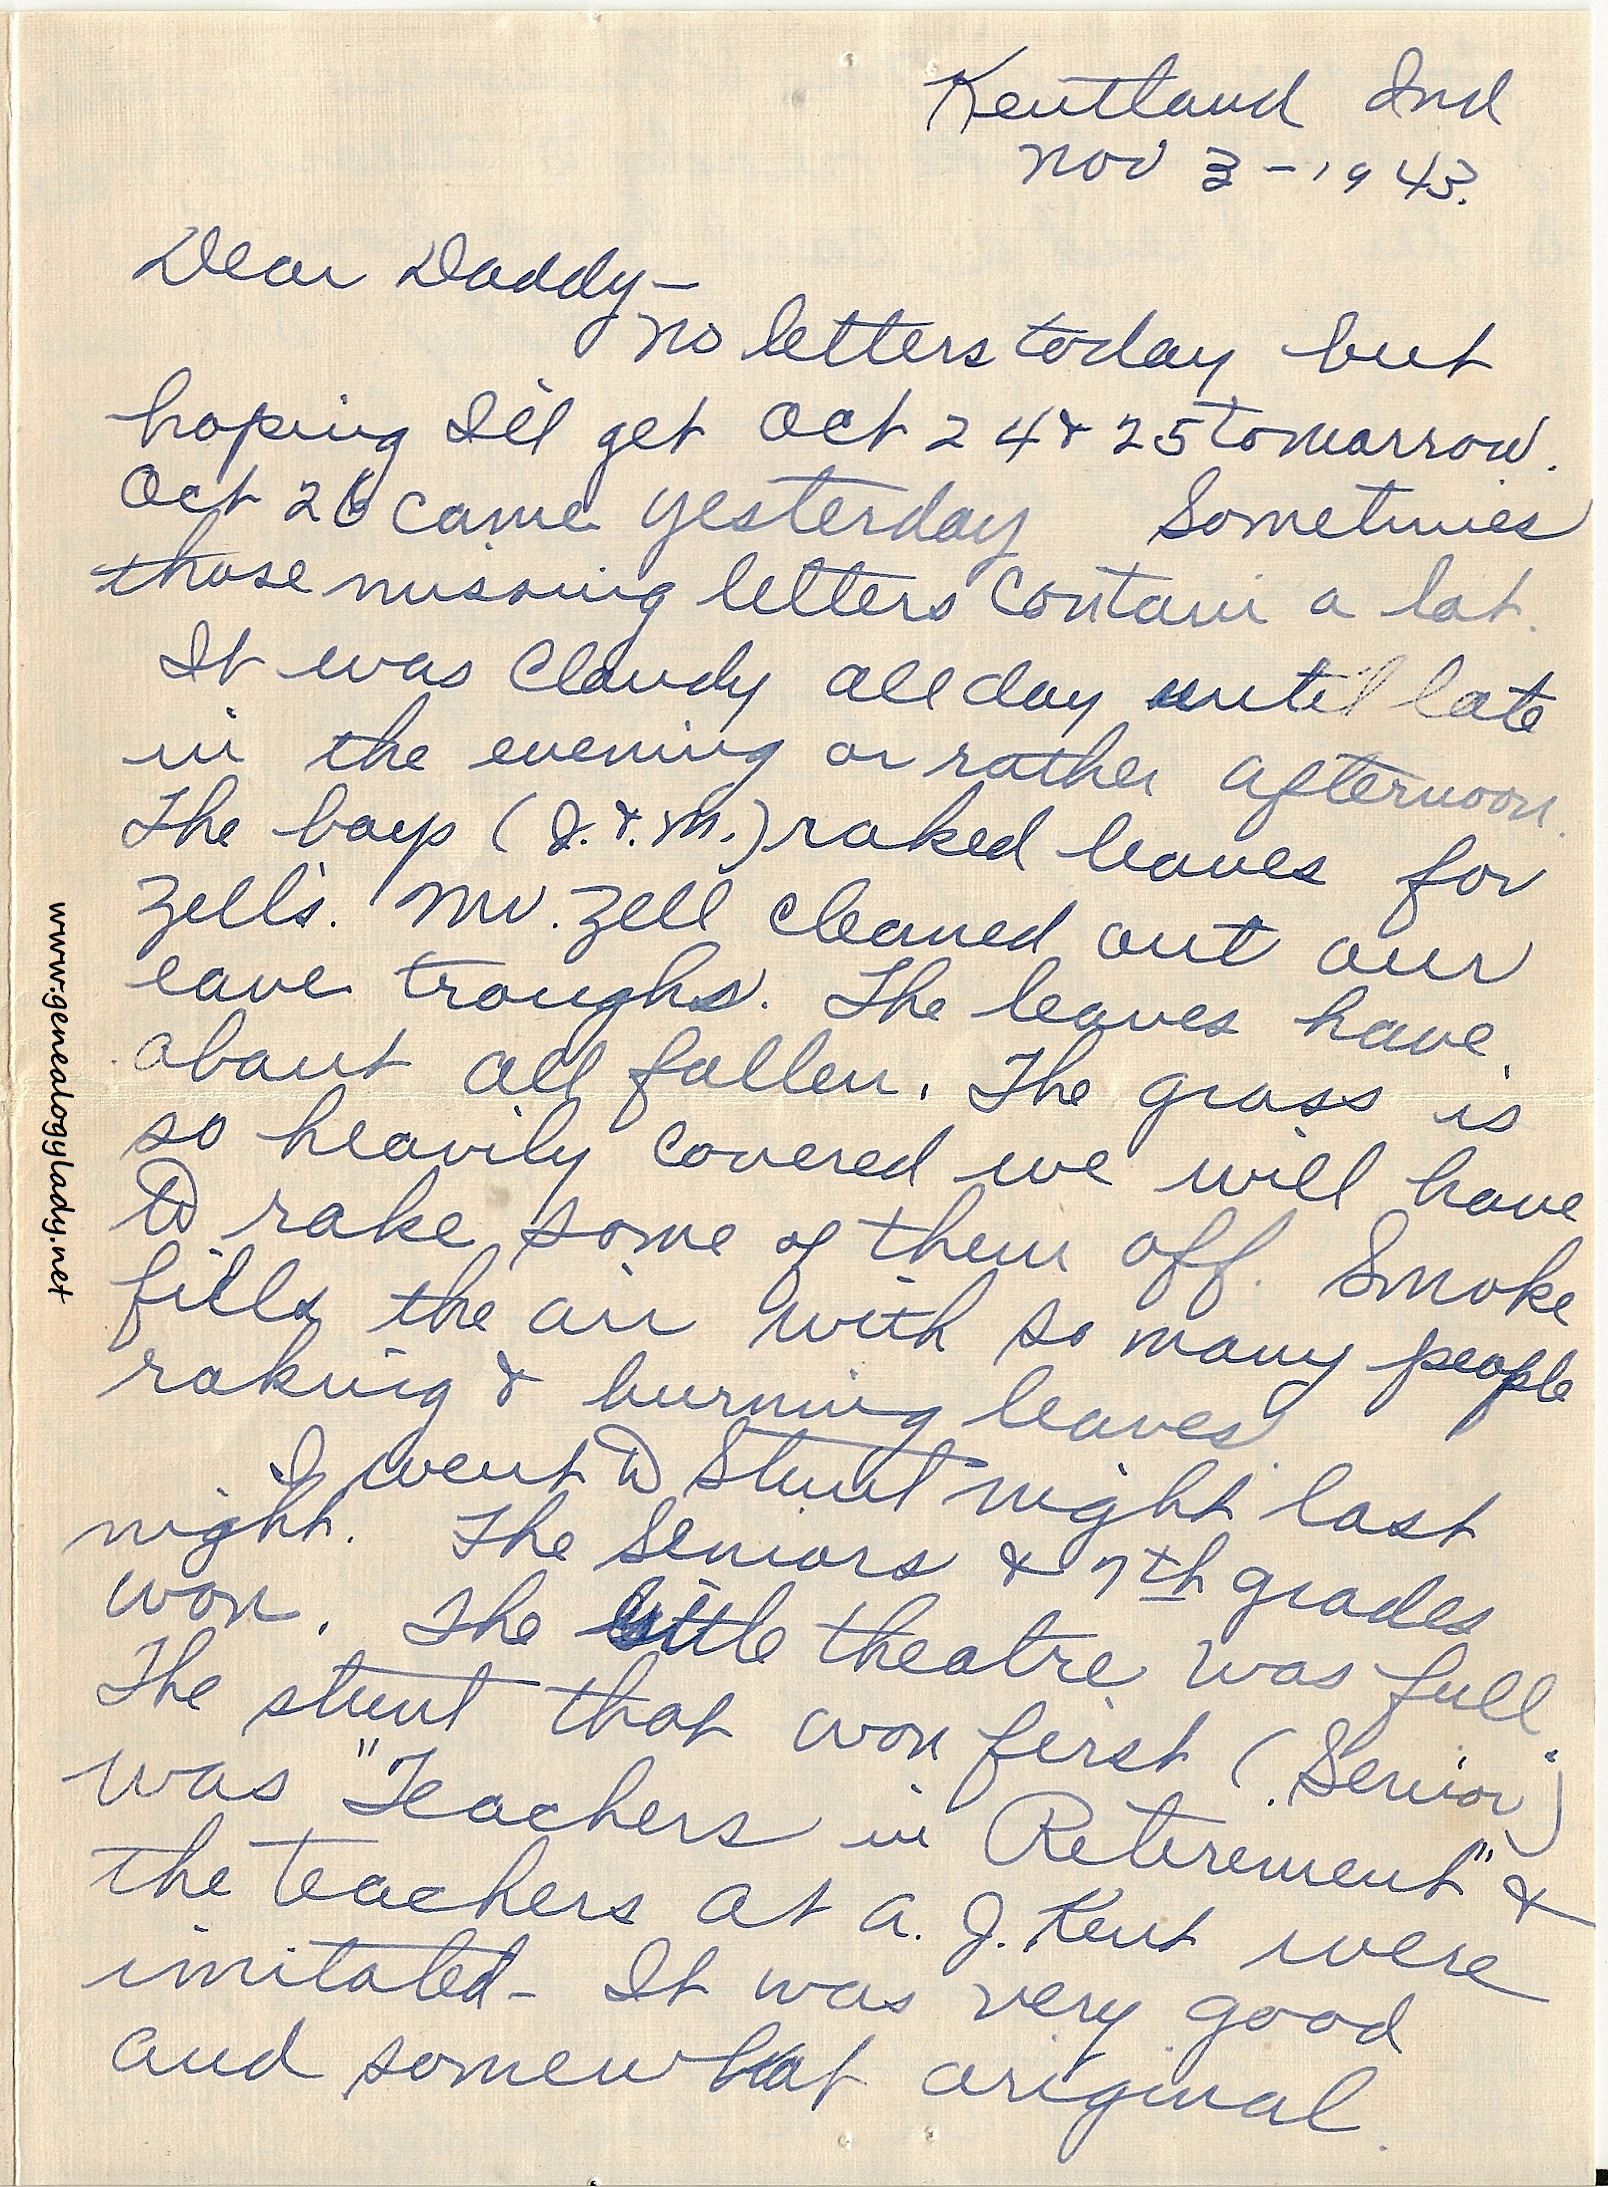 Kentland Ind
Nov 3-1943.
Dear Daddy-
No letters today but
hoping I'll get Oct 24 & 25 tomorrow.
Oct 26 came yesterday Sometimes
those missing letters contain a lot.
It was cloudy all day until late
in the evening or rather afternoon.
The boys (J. & M.) raked leaves for
Zell's. Mr. Zell cleaned out our
eave troughs. The leaves have
about all fallen. The grass is
so heavily covered we will have
to rake some of them off. Smoke
fills the air with so many people
raking & burning leaves
I went to Stunt night last
night. The Seniors & 7th grades
won. The little theatre was full
The stunt that won first (Senior)
was "Teachers in Retirement" &
the teachers at A. J. Kent were
imitated- It was very good
and somewhat original.
www.genealogylady.net